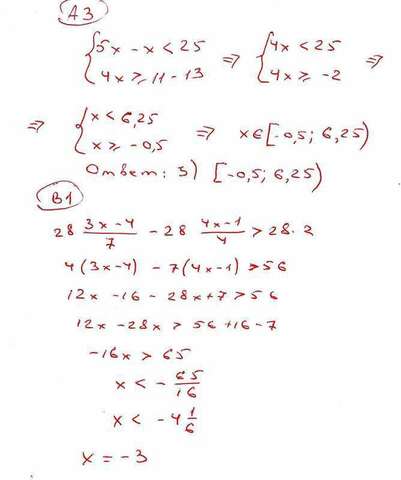 A3
{5x - x < 25 ⇒ {4x < 25 ⇒
{4x ≥ 11 - 13 {4x ≥ -2
⇒ {x < 6,25 ⇒ x ∈ [-0,5; 6,25)
{x ≥ -0,5
Ответ: 3) [-0,5; 6,25)
B1
28 (3x-4)/7 - 28 (4x-1)/4 > 28·2
4(3x-4) - 7(4x-1) > 56
12x - 16 - 28x + 7 > 56
12x - 28x > 56 + 16 - 7
-16x > 65
x < - 65/16
x < -4 1/6
x = -3